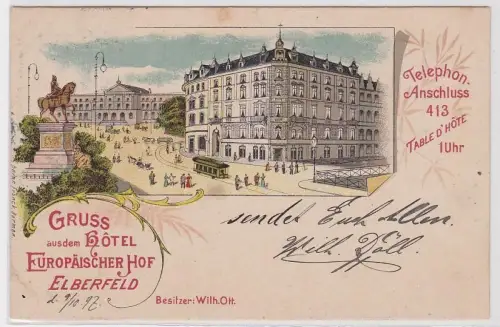 Telephon-
Anschluss
413
TABLE D'HÔTE
1 Uhr
GRUSS
aus dem HÔTEL
EUROPÄISCHER HOF
ELBERFELD
Besitzer: Wilh. Ott.
sendet Euch Allen
Wilh. Döll.
d. 9/10 97.